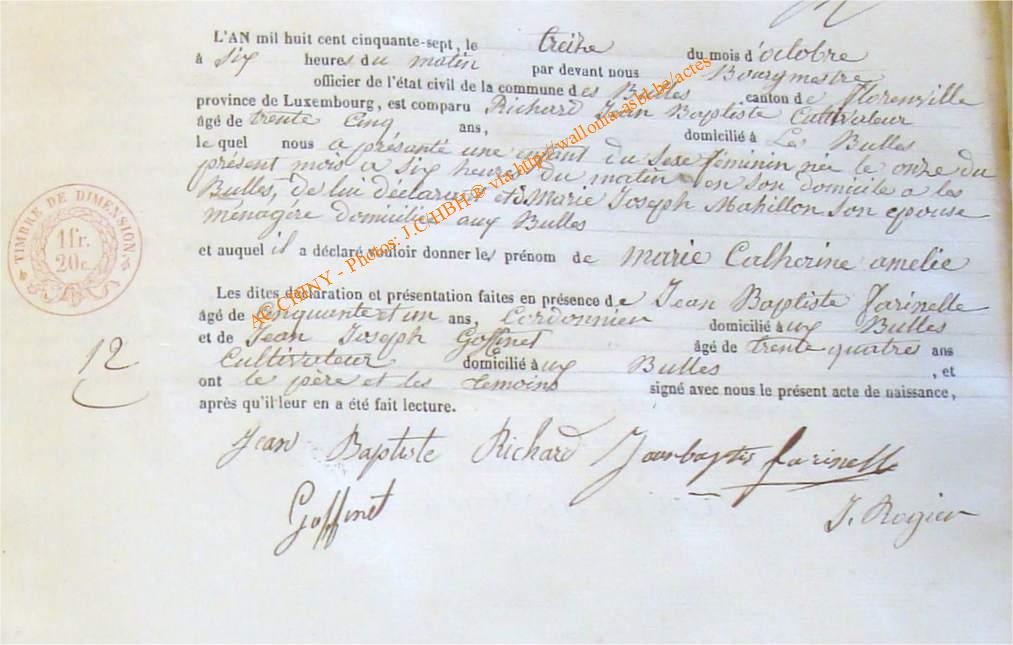 L'AN mil huit cent cinquante-sept, le treize du mois d'octobre
à six heures du matin par devant nous Bourgmestre
officier de l'état civil de la commune des Bulles canton de Florenville
province de Luxembourg, est comparu Richard Jean Baptiste Cultivateur
âgé de trente Cinq ans, domicilié à Les Bulles
le quel nous a présenté une enfant du Sexe féminin née le onze du
présent mois a six heures du matin en son domicile a les
Bulles, de lui déclarant et de Marie Joseph Mahillon son épouse
ménagère domiciliée aux Bulles
et auquel il a déclaré vouloir donner les prénom de marie Catherine amelie
Les dites déclaration et présentation faites en présence de Jean Baptiste Farinelle
âgé de Cinquante et un ans, Cordonnier domicilié aux Bulles
et de Jean Joseph Goffinet âgé de trente quatre ans
Cultivateur domicilié aux Bulles, et
ont le père et les temoins signé avec nous le présent acte de naissance,
après qu'il leur en a été fait lecture.
Jean Baptiste Richard Jean baptis farinelle
Goffinet J. Rogier
TIMBRE DE DIMENSION
1 fr.
20 c.
12
AC CHINY - Photos: J.C HBH ® via http://wallonia-asbl.be/actes